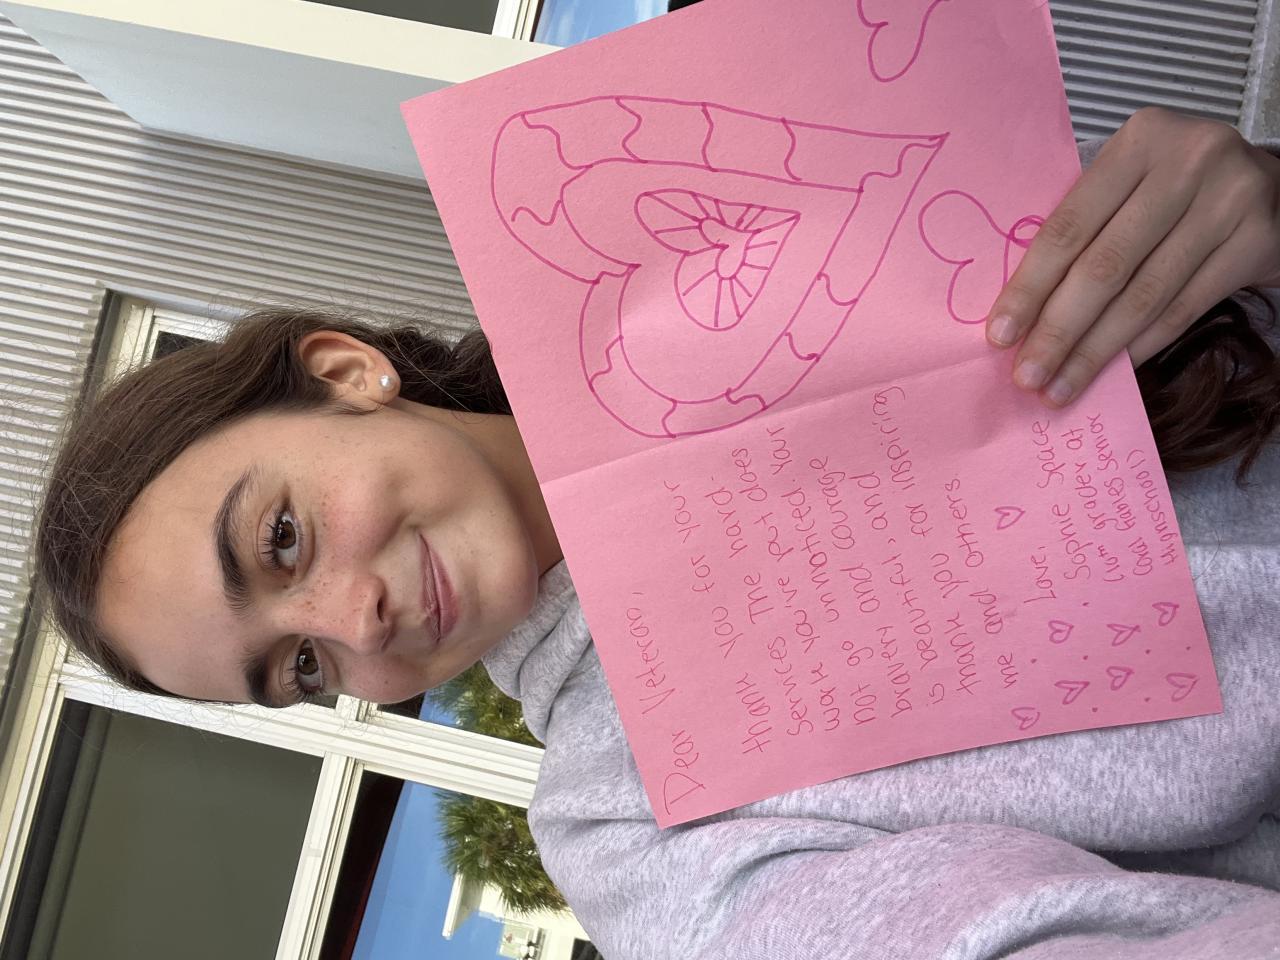 Dear Veteran,
thank you for your
services. The hard-
work you've put does
not go unnoticed. Your
bravery and courage
is beautiful, and
thank you for inspiring
me and others
Love,
Sophie Space
(10th grader at
Coral Gables Senior
Highschool)